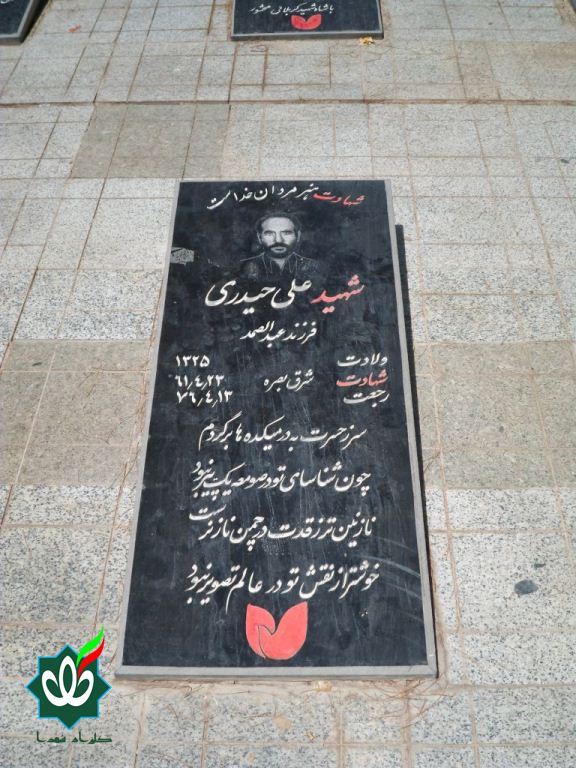 باشاه شهید کربلا می محشور
شهادت هنر مردان خداست
شهید علی حیدری
فرزند عبدالصمد
ولادت ۱۳۲۵
شهادت شرق بصره ۶۱٫۴٫۲۳
رجعت ۷۶٫۴٫۱۳
سر ز حسرت به در میکده ها برکردم
چون شناسای تو در صومعه یک پیر نبود
نازنین تر ز قدت در چمن ناز نرست
خوشتر از نقش تو در عالم تصویر نبود